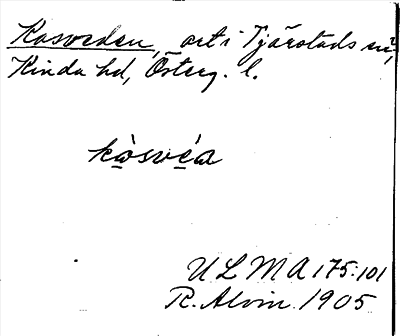 Kasveden, ort i Tjärstads sn,
Kinda hd, Österg. l.
kàsvéa
ULMA 175:101
R. Alvin. 1905